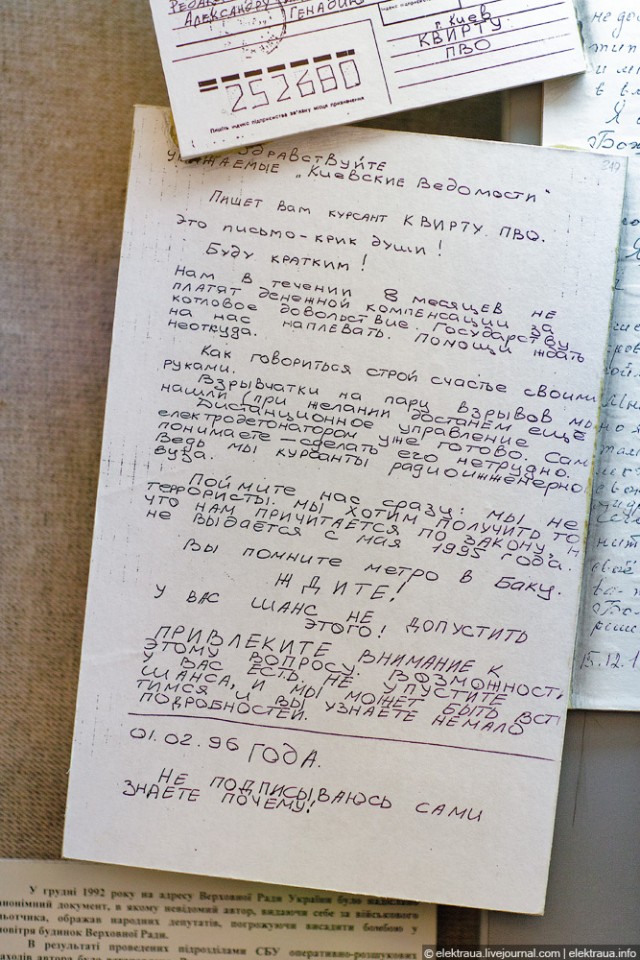 АЛЕКСАНДРУ
ГЕНАДИЮ
г. Киев
КВИРТУ
ПВО
252680
Пишіть індекс підприємства зв'язку місця призначення
247
Здравствуйте
уважаемые „Киевские Ведомости"
Пишет Вам курсант КВИРТУ ПВО.
Это письмо-крик души!
Буду кратким!
Нам в течении 8 месяцев не
платят денежной компенсации за
котловое довольствие. Государству
на нас наплевать. Помощи ждать
неоткуда.
Как говориться строй счастье своими
руками.
Взрывчатки на пару взрывов мы
нашли (при желании достанем ещё
Дистанционное управление
електродетонатором уже готово. Сами
понимаете — сделать его нетрудно.
Ведь мы курсанты радиоинженерно
вуза.
Поймите нас сразу: мы не
террористы. Мы хотим получить то
что нам причитается по закону, и
не выдаётся с мая 1995 года.
Вы помните метро в Баку.
ЖДИТЕ!
У вас шанс не допустить
этого!
ПРИВЛЕКИТЕ ВНИМАНИЕ К
ЭТОМУ ВОПРОСУ. ВОЗМОЖНОСТЬ
У ВАС ЕСТЬ. НЕ УПУСТИТЕ
ШАНСА, И МЫ МОЖЕТ БЫТЬ ВСТ
ТИМСЯ И ВЫ УЗНАЕТЕ НЕМАЛО
ПОДРОБНОСТЕЙ.
01.02.96 ГОДА.
НЕ ПОДПИСЫВАЮСЬ САМИ
ЗНАЕТЕ ПОЧЕМУ!
15.12.1
У грудні 1992 року на адресу Верховної Ради України було надіслано
анонімний документ, в якому невідомий автор, видаючи себе за військового
льотчика, ображав народних депутатів, погрожуючи висадити бомбою у
повітря будинок Верховної Ради.
В результаті проведених підрозділами СБУ оперативно-розшукових
заходів автора було
© elektraua.livejournal.com | elektraua.info